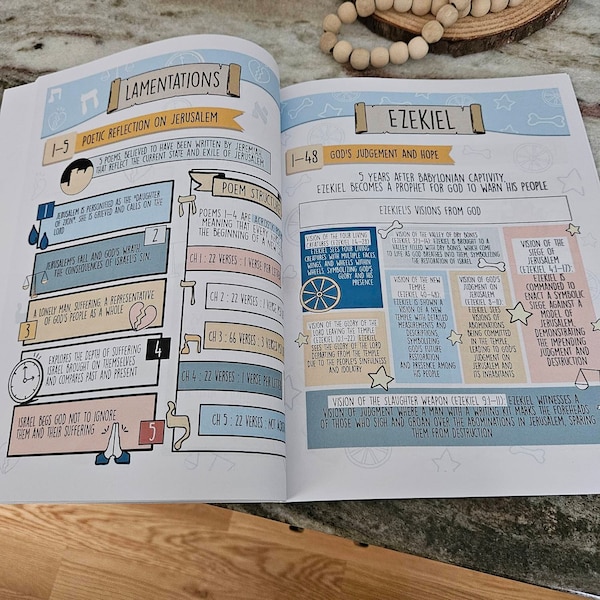 LAMENTATIONS
1-5 POETIC REFLECTION ON JERUSALEM
5 POEMS, BELIEVED TO HAVE BEEN WRITTEN BY JEREMIAH
THAT REFLECT THE CURRENT STATE AND EXILE OF JERUSALEM
1
JERUSALEM IS PERSONIFIED AS THE "DAUGHTER
OF ZION". SHE IS GRIEVED AND CALLS ON THE
LORD
2
JERUSALEM'S FALL AND GOD'S WRATH.
THE CONSEQUENCES OF ISRAEL'S SIN.
A LONELY MAN, SUFFERING A REPRESENTATIVE
OF GOD'S PEOPLE AS A WHOLE
3
EXPLORES THE DEPTH OF SUFFERING
ISRAEL BROUGHT ON THEMSELVES
AND COMPARES PAST AND PRESENT
4
ISRAEL BEGS GOD NOT TO IGNORE
THEM AND THEIR SUFFERING
5
POEM
POEMS 1-4 ARE
MEANING THAT EVERY
THE BEGINNING OF A NEW
CH 1 : 22 VERSES : 1 VERSE PER
CH 2 : 22 VERSES : 1 VERSE
CH 3 : 66 VERSES : 3 VERSES
CH 4 : 22 VERSES : 1 VERSE PER
CH 5 : 22 VERSES : NOT
EZEKIEL
1-48 GOD'S JUDGEMENT AND HOPE
5 YEARS AFTER BABYLONIAN CAPTIVITY,
EZEKIEL BECOMES A PROPHET FOR GOD TO WARN HIS PEOPLE
EZEKIEL'S VISIONS FROM GOD
VISION OF THE FOUR LIVING
CREATURES (EZEKIEL
EZEKIEL SEES FOUR LIVING
CREATURES WITH MULTIPLE FACES,
WINGS, AND WHEELS WITHIN
WHEELS, SYMBOLIZING GOD'S
GLORY AND HIS
PRESENCE
VISION OF THE VALLEY OF DRY BONES
(EZEKIEL 37:1-14): EZEKIEL IS BROUGHT TO A
VALLEY FILLED WITH DRY BONES, WHICH COME
TO LIFE AS GOD BREATHES INTO THEM, SYMBOLIZING
THE RESTORATION OF ISRAEL
VISION OF THE
SIEGE OF
JERUSALEM
(EZEKIEL 4:1-17):
EZEKIEL IS
COMMANDED TO
ENACT A SYMBOLIC
SIEGE AGAINST A
MODEL OF
JERUSALEM,
DEMONSTRATING
THE IMPENDING
JUDGMENT AND
DESTRUCTION
VISION OF THE GLORY OF THE
LORD LEAVING THE TEMPLE
(EZEKIEL 10:1-22): EZEKIEL
SEES THE GLORY OF THE LORD
DEPARTING FROM THE TEMPLE
DUE TO THE PEOPLE'S SINFULNESS
AND IDOLATRY
VISION OF THE
NEW TEMPLE
(EZEKIEL 40-48):
EZEKIEL IS
SHOWN A VISION
OF A NEW
TEMPLE WITH DETAILED
MEASUREMENTS AND
DESCRIPTIONS,
SYMBOLIZING
GOD'S FUTURE
RESTORATION
AND PRESENCE AMONG
HIS PEOPLE
VISION OF GOD'S
JUDGMENT ON
JERUSALEM
(EZEKIEL
EZEKIEL SEES
VISIONS OF
ABOMINATIONS
BEING COMMITTED IN
THE TEMPLE,
LEADING TO GOD'S
JUDGMENT ON
JERUSALEM AND
ITS INHABITANTS
VISION OF THE SLAUGHTER WEAPON (EZEKIEL 9:1-11): EZEKIEL WITNESSES A
VISION OF JUDGMENT WHERE A MAN WITH A WRITING KIT MARKS THE FOREHEADS
OF THOSE WHO SIGH AND GROAN OVER THE ABOMINATIONS IN JERUSALEM, SPARING
THEM FROM DESTRUCTION